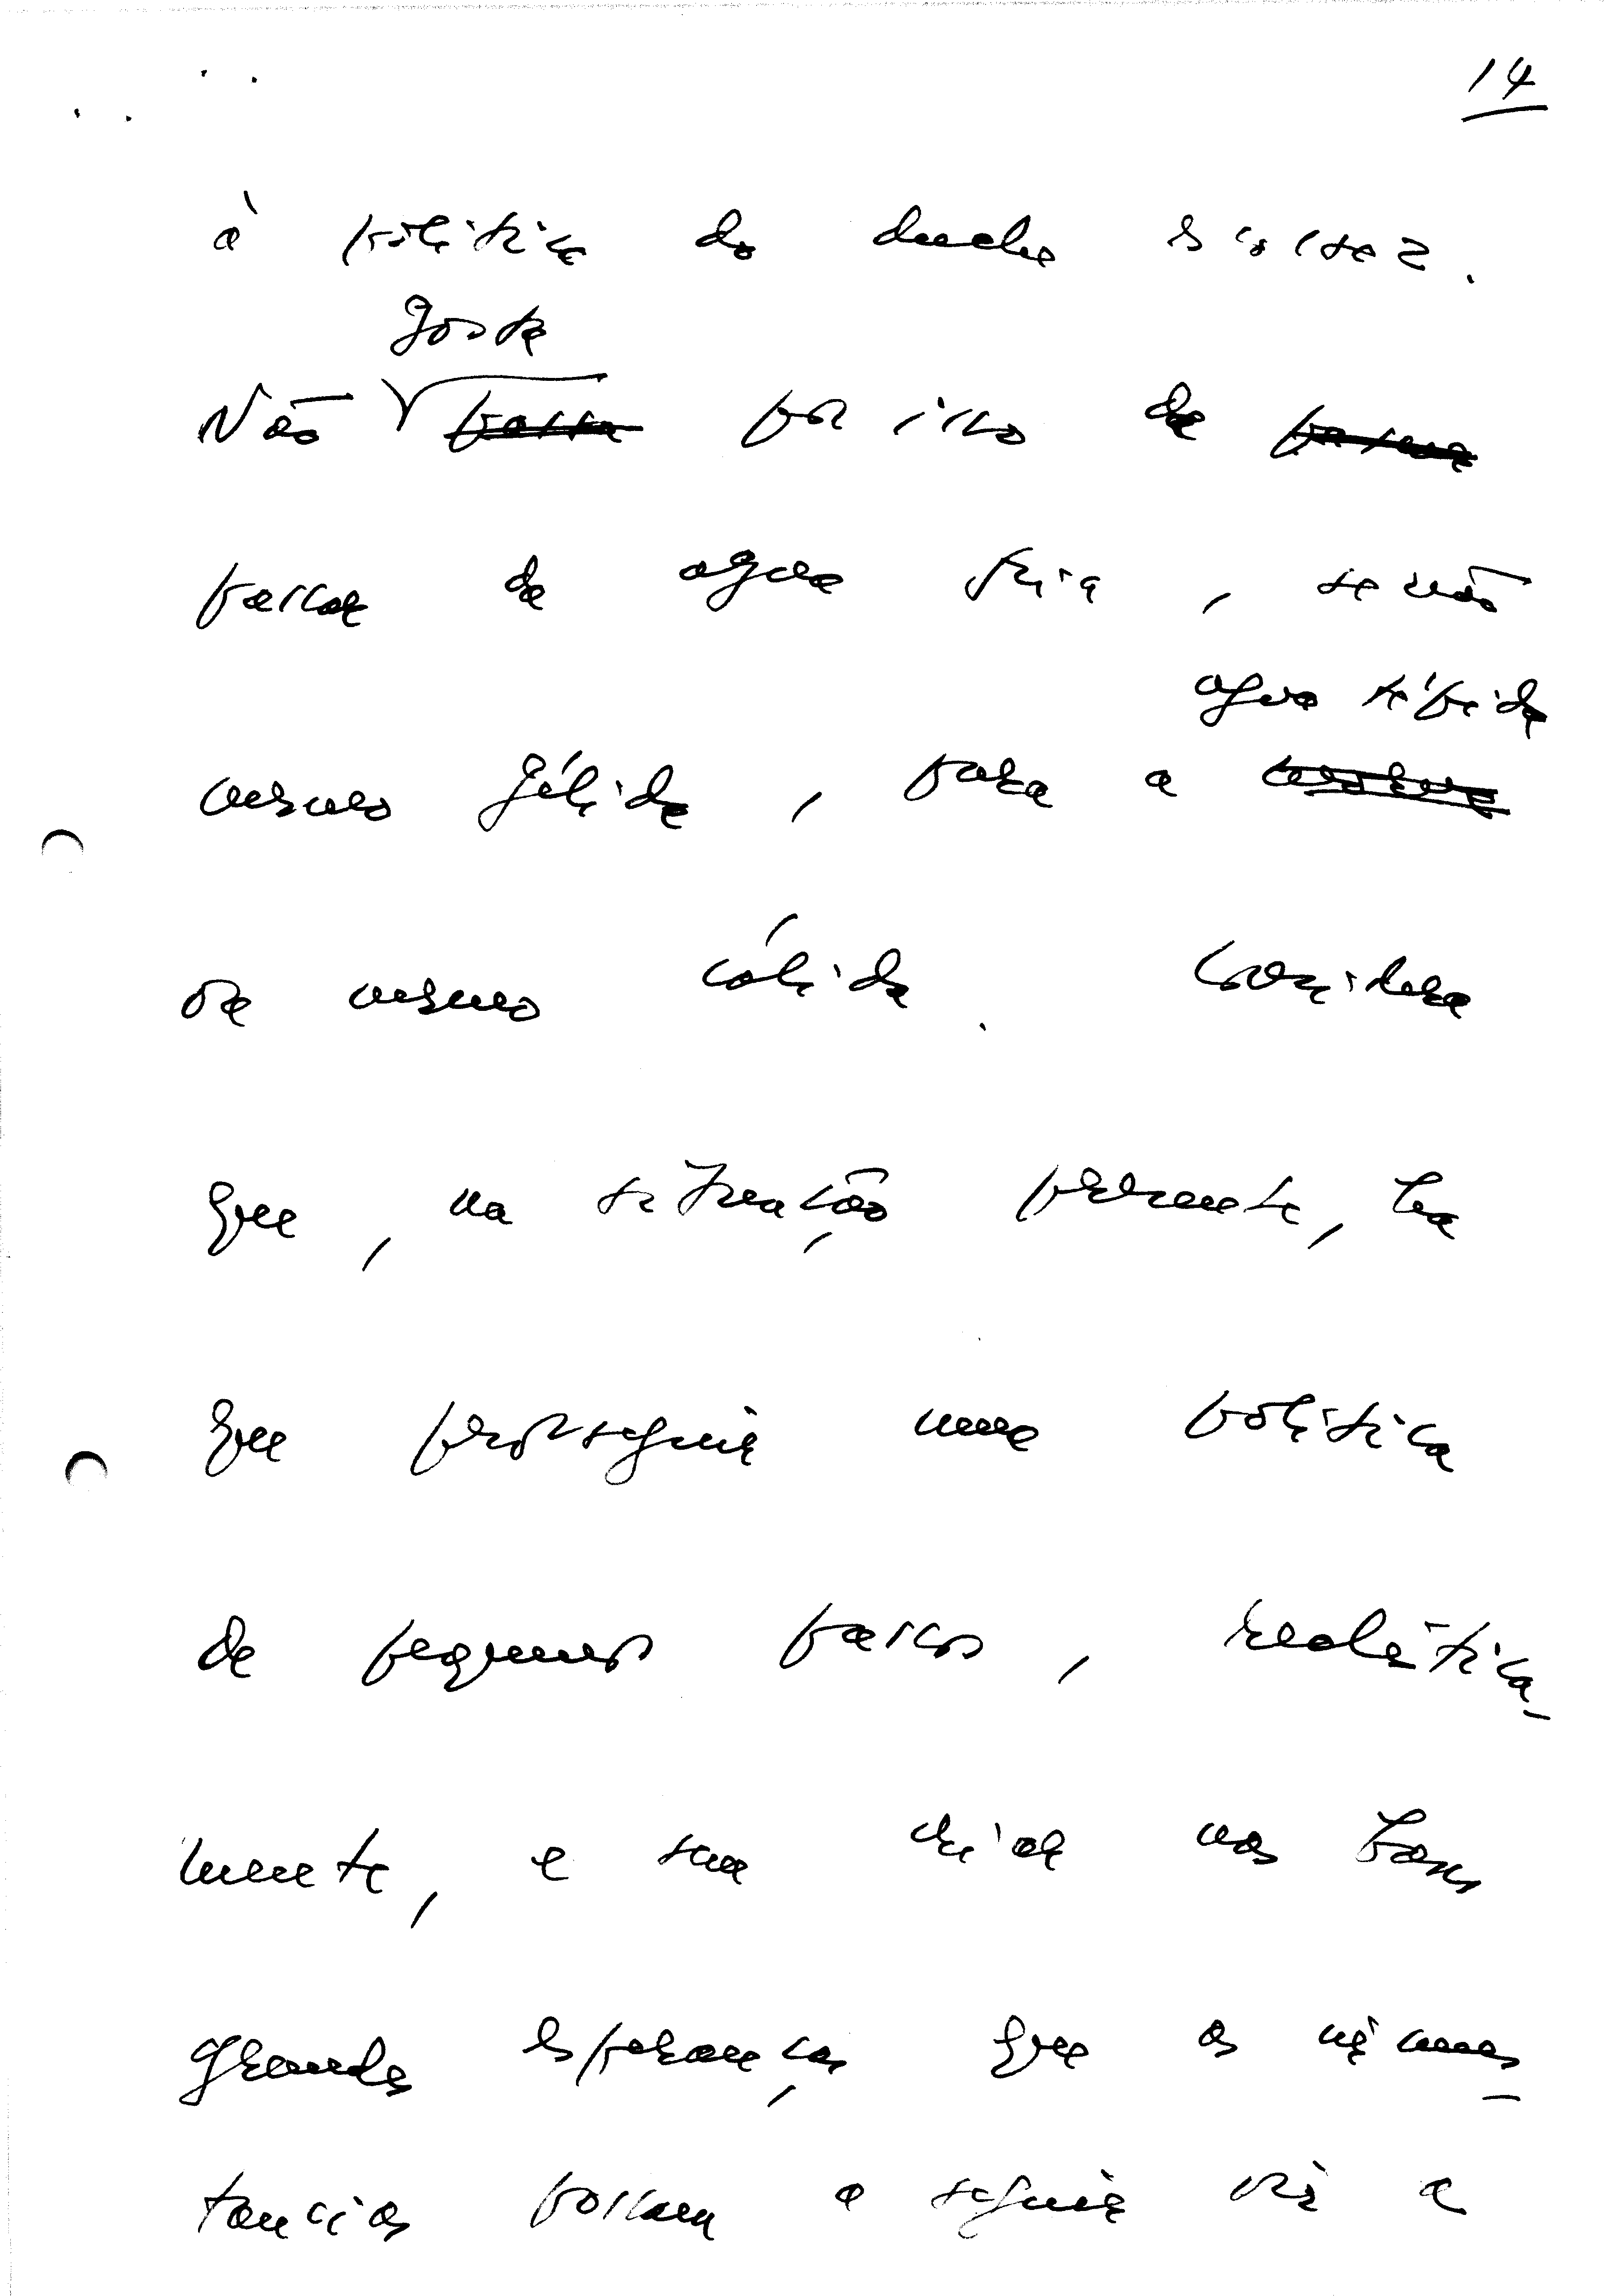 14
à política do duche escocez.
Gosta
Não passa por isso de passar
passar de agua fria, se não
agua tépida
mesmo gélida, para a
ou mesmo cálida. Considera
que, na situação presente, tem
que prosseguir uma política
de pequenos passos, realística-
mente, e sem criar nos bons
grandes esperanças que as circuns-
tancias possam a seguir vir a